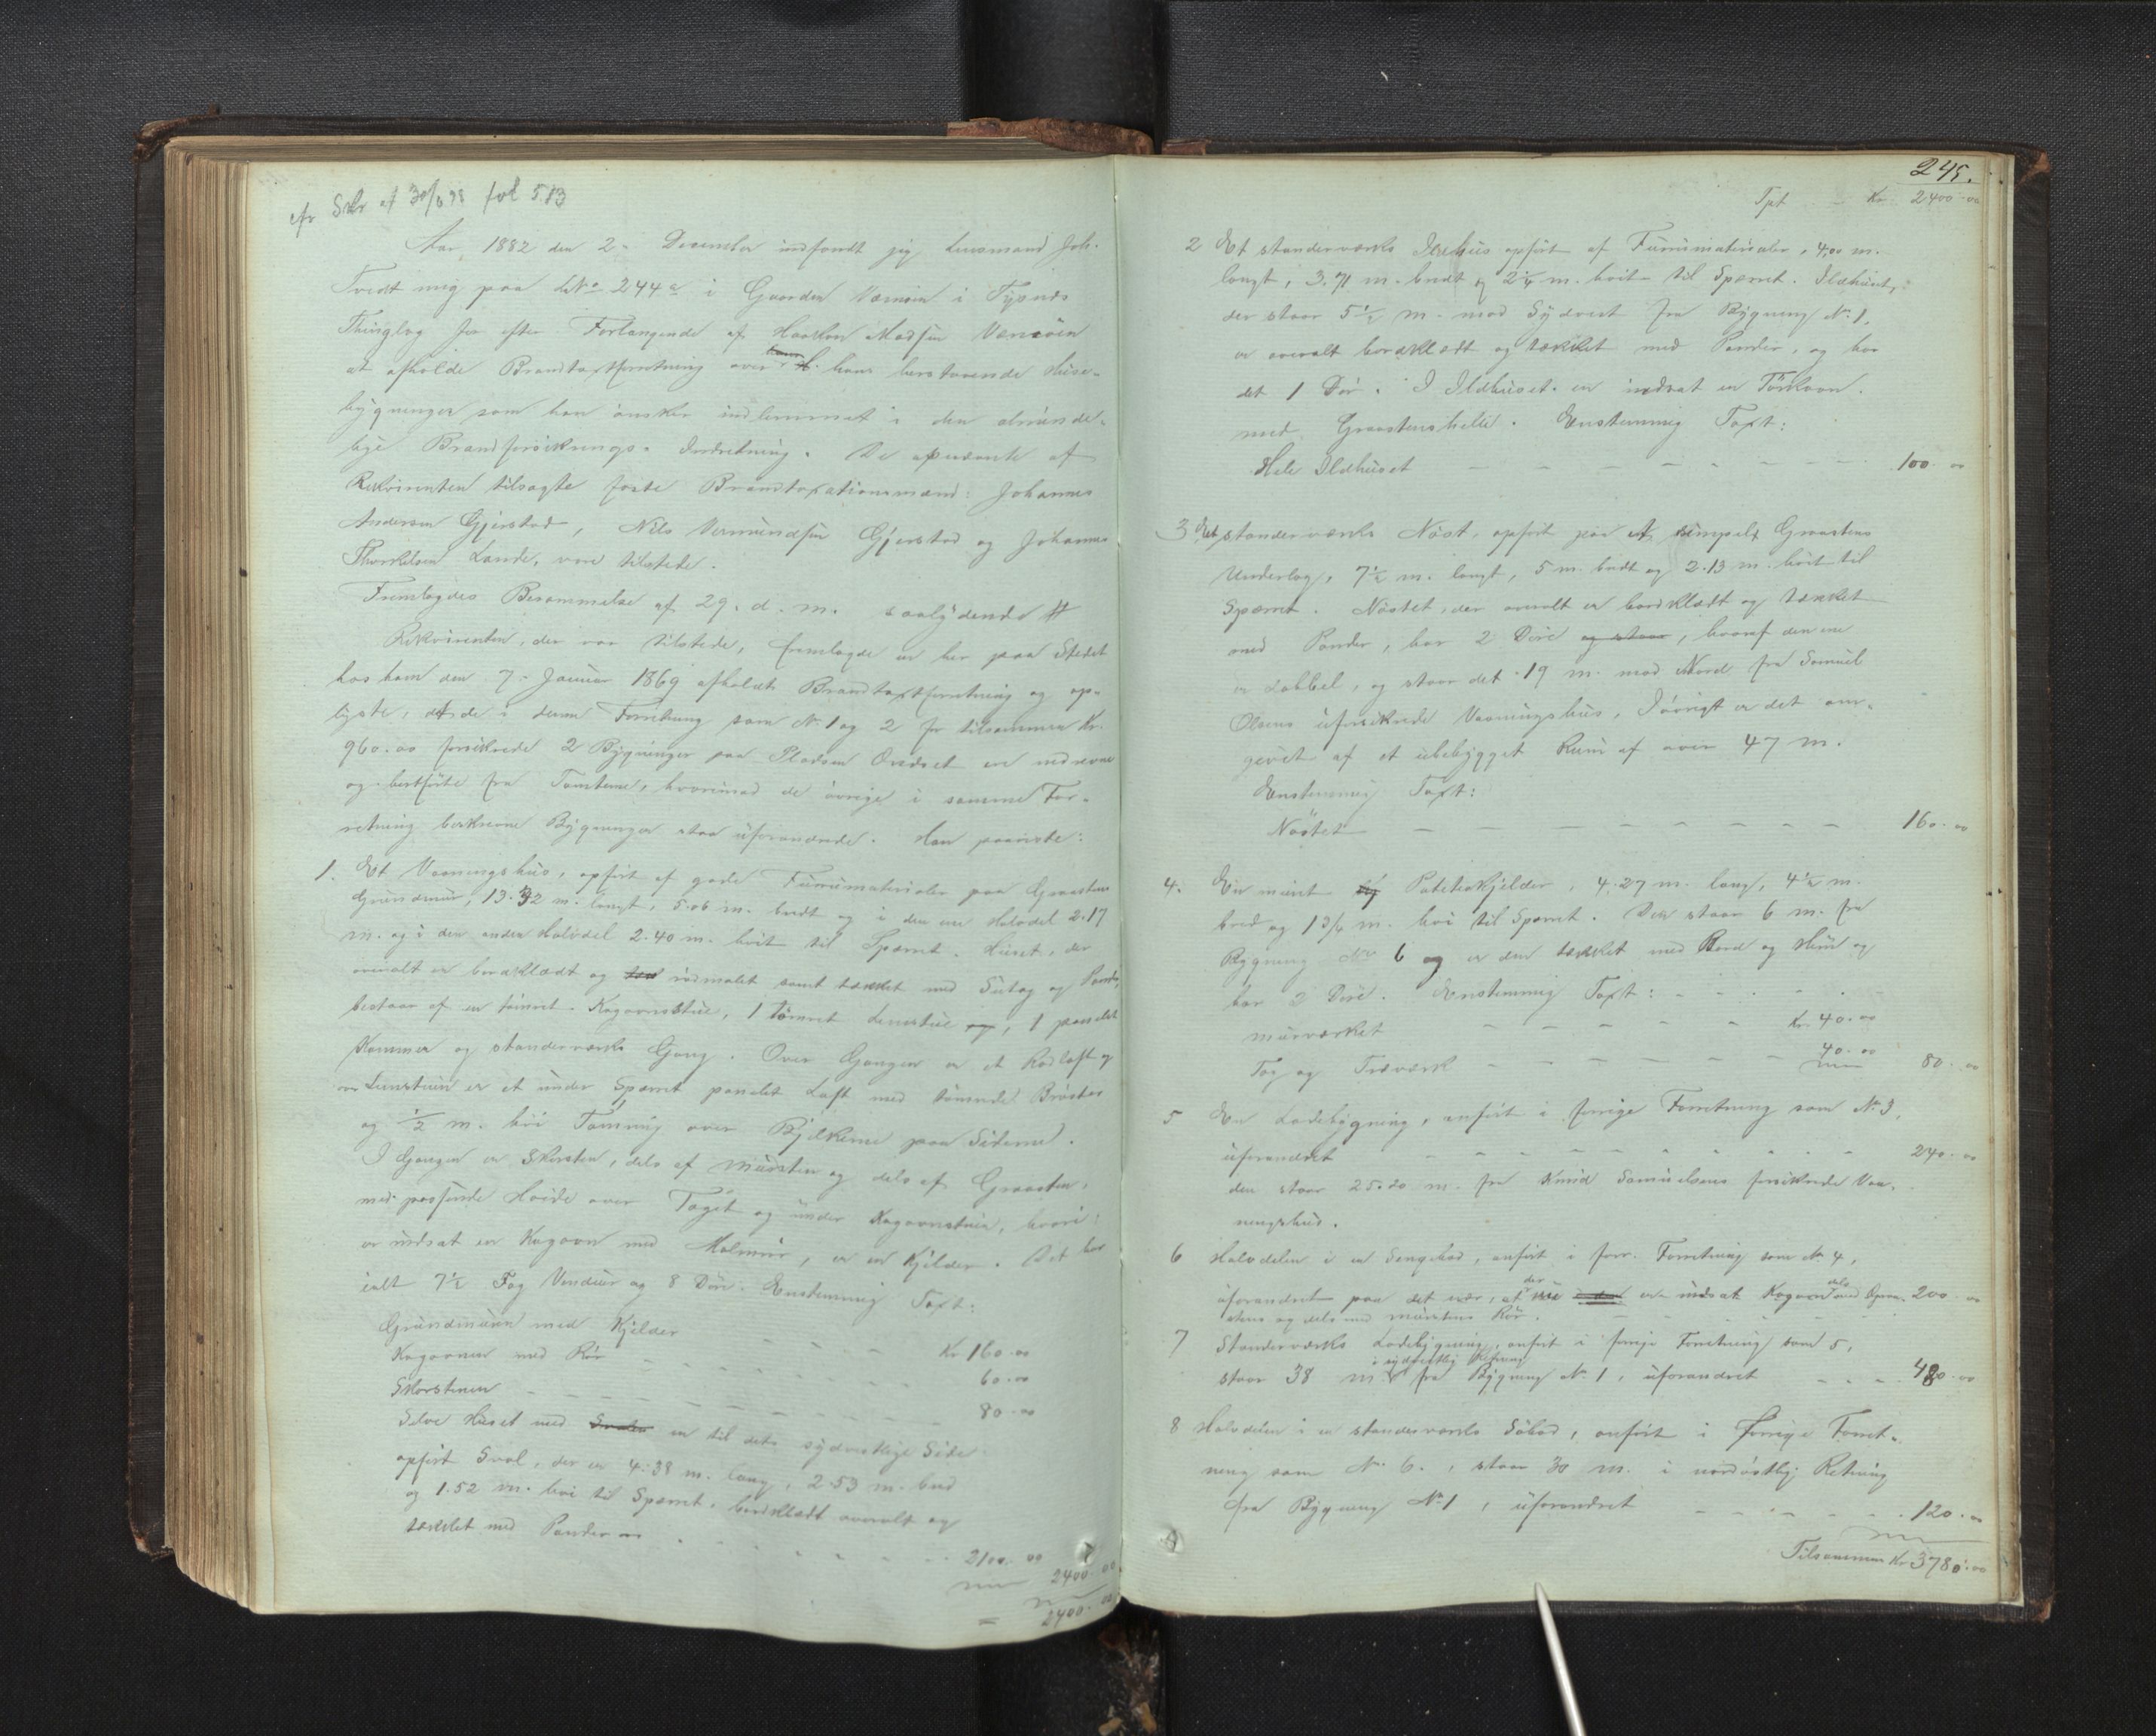 cfr Skr af 30/6 98 fol 513
Aar 1882 den 2. December indfandt jeg Lensmand Joh.
Tvedt mig paa LNo 244a i Gaarden Værnöen i Tysnæs
Thinglag for efter Forlangende af Haakon Madsen Værnöen
at afholde Brandtaxtforretning over hans herstaaende Huse-
bygninger som han ønsker indlemmet i den alminde-
lige Brandforsikrings-Indretning. De opnævnte af
Rekvirenten tilsagte faste Brandtaxationsmænd: Johannes
Andersen Gjerstad, Nils Vermundsen Gjerstad og Johannes
Thorkelsen Lande, var tilstede.
Fremlagdes Berammelse af 29. d. m. saalydende #
Rekvirenten, der var tilstede, fremlagde en her paa Stedet
hos ham den 7. Januar 1869 afholdt Brandtaxtforretning og op-
lyste, at de i denne Forretning som No 1 og 2 for tilsammen Kr.
960.00 forsikrede 2 Bygninger paa Pladsen er nedrevne
og bortførte fra Tomterne, hvorimod de övrige i samme For-
retning beskrevne Bygninger staa uforandrede. Han paaviste:
1. Et Vaaningshus, opfört af gode Furumaterialer paa Graastens
Grundmur, 13.32 m. langt, 5.06 m. bredt og i den ene Halvdel 2.17
m. og i den anden Halvdel 2.40 m. höit til Spærret. Huset, der
overalt er bordklædt og rödmalet samt tækket med Sutag og Pander,
bestaar af en tömret Kogovnsstue, 1 tömret Lemstue, 1 panelet
Kammer og standerværks Gang. Over Gangen er et Rødloft og
over Lemstuen er et under Spærret panelet Loft med tömrede Bröster
og 1/2 m. höi Tömring over Bjelkerne paa Siderne.
I Gangen er Skorsten, dels af Mursten og dels af Graasten,
med passende Höide over Taget og under Kogovnstuen, hvori
er indsat en Kogovn med Halvmur, er en Kjelder. Det har
ialt 7 1/2 Fag Vinduer og 8 Döre. Enstemmig Taxt:
Grundmuren med Kjelder - - - Kr 160.00
Kogovnen med Rör - - - 60.00
Skorstenen - - - 80.00
Selve Huset med en til dets sydvestlige Side
opfört Sval, der er 4.38 m. lang, 2.53 m. bred
og 1.52 m. höi til Spærret, bordklædt overalt og
tækket med Pander - - - 2100.00
2400.00
2400.00
245.
Tpt - Kr 2400.00
2 Et standerværks Ildhus opfört af Furumaterialer, 4.00 m.
langt, 3.71 m. bredt og 2 1/4 m. höit til Spærret. Ildhuset,
der staar 5 1/2 m. mod Sydvest fra Bygning No 1,
er overalt bordklædt og tækket med Pander, og har
det 1 Dör. I Ildhuset er indsat en Törkovn
med Graastenshelle. Enstemmig Taxt:
Hele Ildhuset - - - 100.00
3 Et standerværks Nöst, opfört paa et simpelt Graastens
Underlag, 7 1/2 m. langt, 5 m. bredt og 2.13 m. höit til
Spærret. Nöstet, der overalt er bordklædt og tækket
med Pander, har 2 Döre og staar, hvoraf den ene
er dobbel, og staar det 19 m. mod Nord fra Samuel
Olsens uforsikrede Vaaningshus, Iövrigt er det om-
givet af et ubebygget Rum af over 47 m.
Enstemmig Taxt:
Nöstet - - - 160.00
4. En muret Potetekjelder, 4.27 m. lang, 4 1/2 m.
bred og 1 3/4 m. höi til Spærret. Den staar 6 m. fra
Bygning No 6 og er den tækket med Bord og Hun og
har 2 Döre. Enstemmig Taxt:
Murværket - - - Kr. 40.00
Tag og Træværk - - - 40.00 80.00
5 En Ladebygning, anfört i forrige Forretning som No 3,
uforandret - - - 240.00
den staar 25.20 m. fra Knud Samuelsens forsikrede Vaa-
ningshus.
6 Halvdelen i en Sengebod, anfört i forr. Forretning som No 4,
uforandret paa det nær, at der er indsat Kogovn dels med 200.00
stens og dels med murstens Rör.
7 Standerværks Ladebygning, anfört i forrige Forretning som 5,
staar 38 m. i sydvestlig Retning fra Bygning No 1, uforandret - - - 480.00
8 Halvdelen i en standerværks Söbod, anfört i forrige Forret-
ning som No 6., staar 30 m. i nordöstlig Retning
fra Bygning No 1, uforandret - - - 120.00
Tilsammen Kr 3780.00